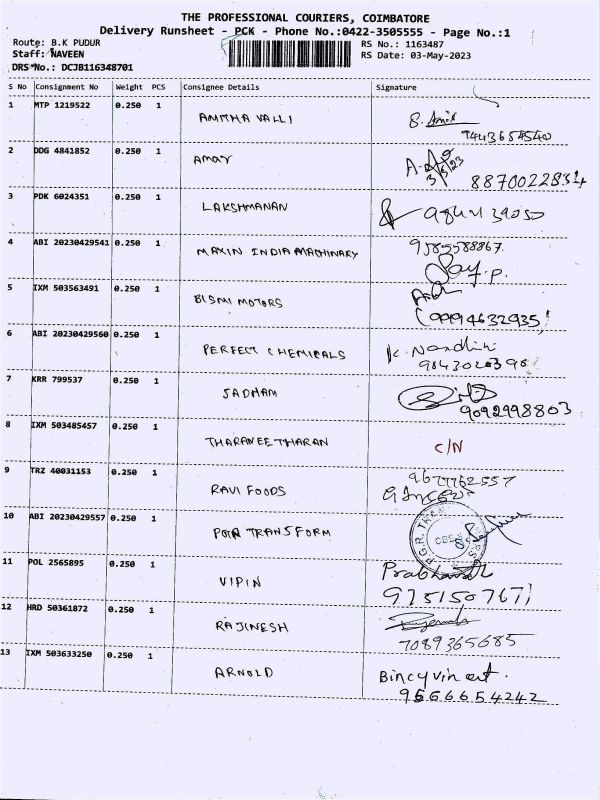 THE PROFESSIONAL COURIERS, COIMBATORE
Delivery Runsheet - PCK - Phone No.:0422-3505555 - Page No.:1
Route: B.K PUDUR
RS No.: 1163487
Staff: NAVEEN
RS Date: 03-May-2023
DRS No.: DCJB116348701
S No Consignment No Weight PCS Consignee Details Signature
1 MTP 1219522 0.250 1 AMITHA VALLI
9443654540
2 DDG 4841852 0.250 1 AMAY
3/5/23 8870022834
3 PDK 6024351 0.250 1 LAKSHMANAN
4 ABI 20230429541 0.250 1 MAXIN INDIA MACHINARY
9585588867.
5 IXM 503563491 0.250 1 BISMI MOTORS
(9994632935)
6 ABI 20230429560 0.250 1 PERFECT CHEMICALS
K. Nandhini
7 KRR 799537 0.250 1 JADHAM
9092998803
8 IXM 503485457 0.250 1 THARANEETHARAN C/N
9 TRZ 40031153 0.250 1 RAVI FOODS
9677762557
10 ABI 20230429557 0.250 1 TRANSFORM
P.G.R.
11 POL 2565895 0.250 1 VIPIN
12 HRD 50361872 0.250 1 RAJINESH
7089365685
13 IXM 503633250 0.250 1 ARNOLD
9566654242